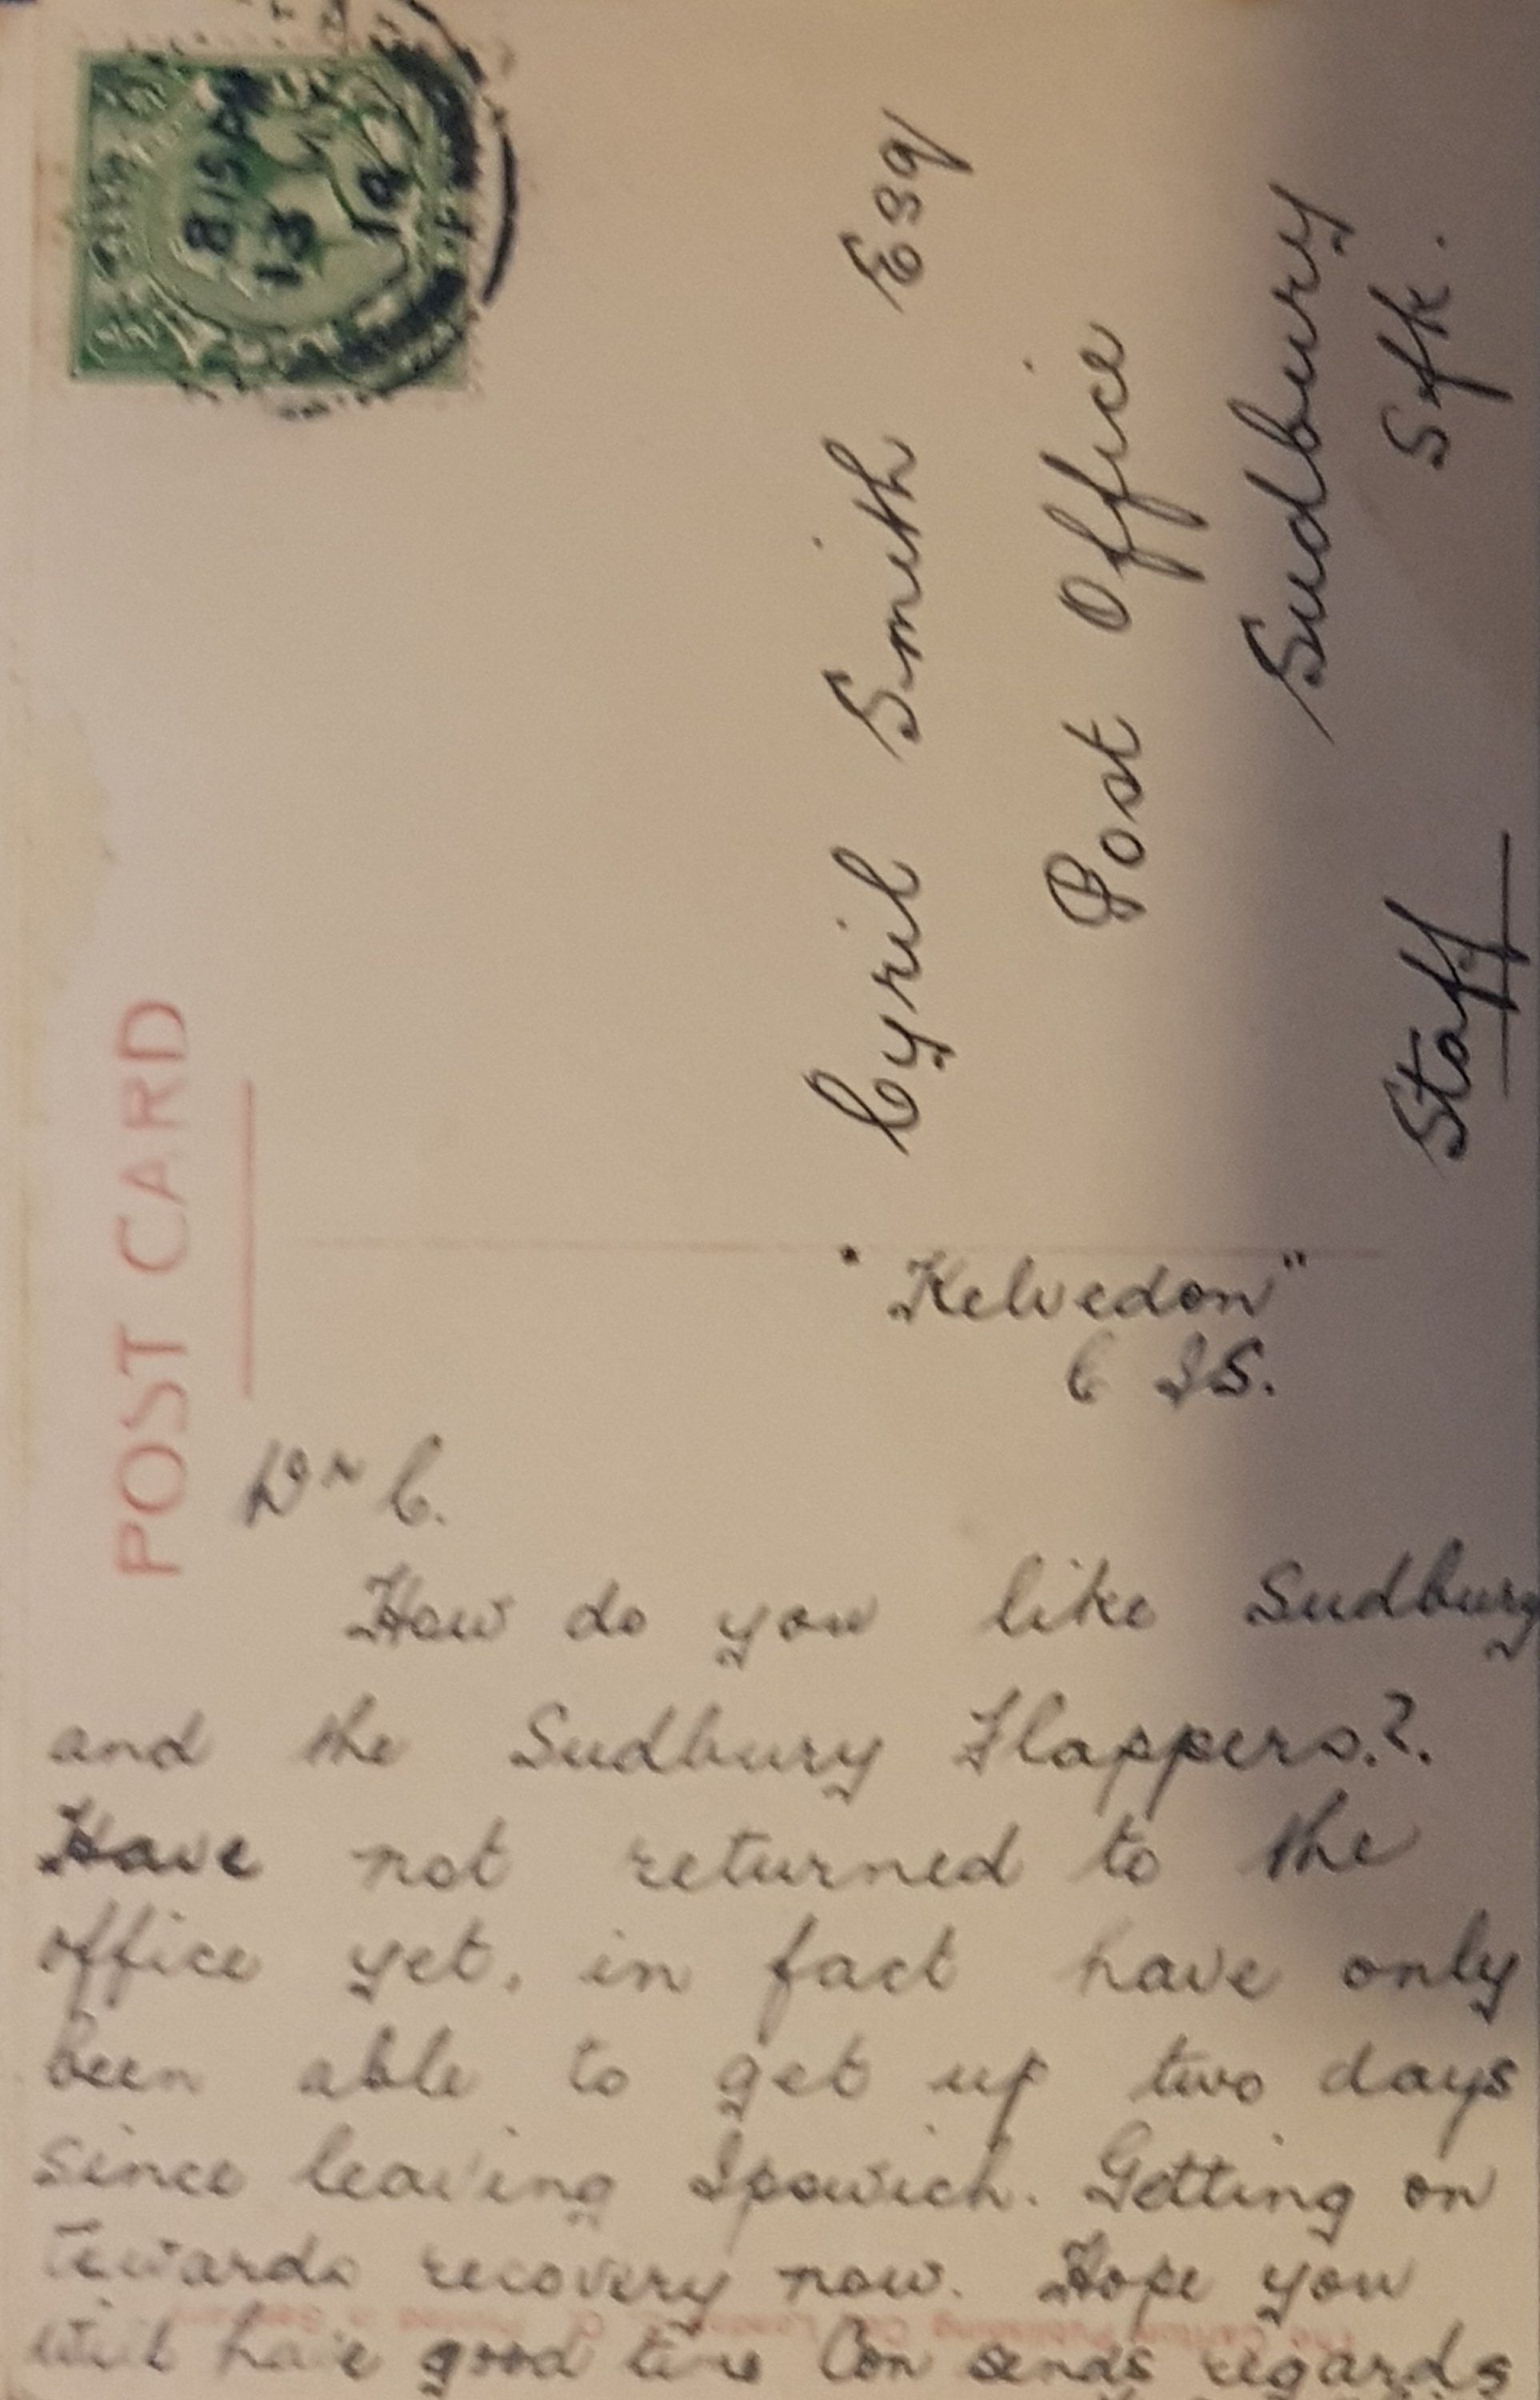 POST CARD
8 15 PM
13
Cyril Smith Esq
Post Office
Sudbury
Sfk.
Staff
"Kelvedon"
C
Dr C.
How do you like Sudbury
and the Sudbury Flappers.?.
Have not returned to the
office yet. in fact have only
been able to get up two days
since leaving Ipswich. Getting on
Towards recovery now. Hope you
will have good time Con sends regards